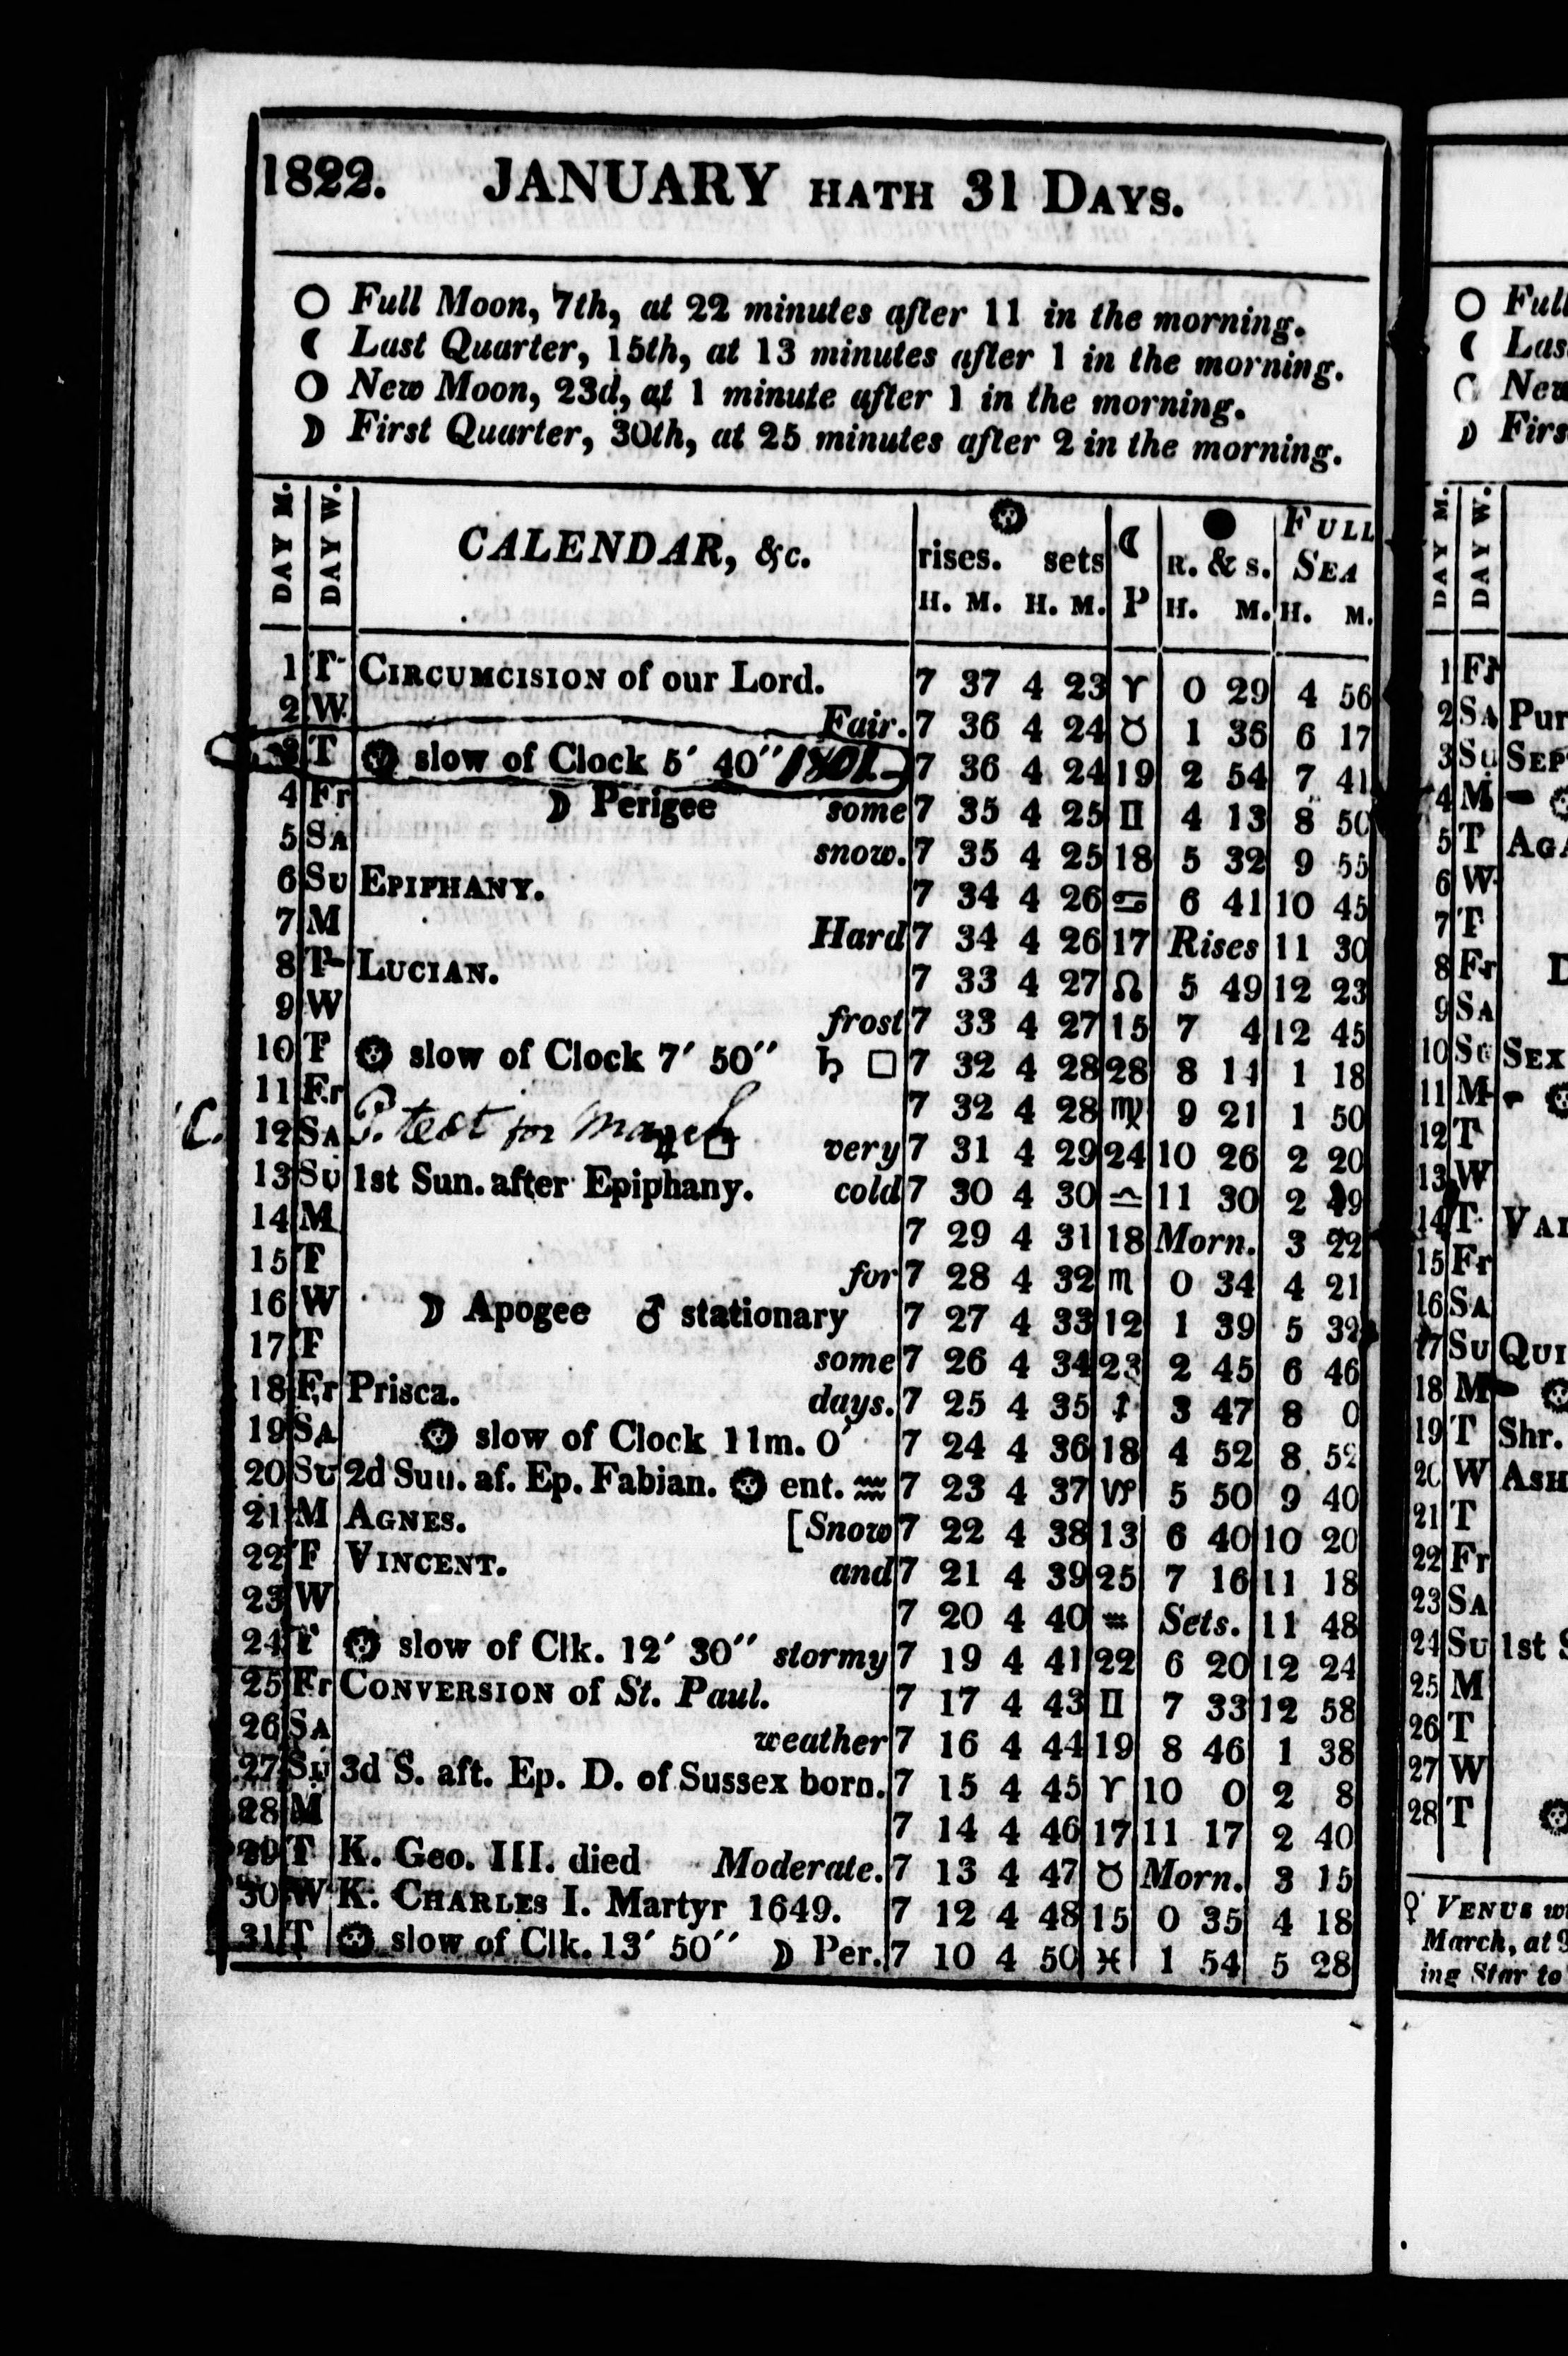 1822. JANUARY HATH 31 DAYS.
○ Full Moon, 7th, at 22 minutes after 11 in the morning.
☾ Last Quarter, 15th, at 13 minutes after 1 in the morning.
○ New Moon, 23d, at 1 minute after 1 in the morning.
☽ First Quarter, 30th, at 25 minutes after 2 in the morning.
DAY M. DAY W. CALENDAR, &c. rises. sets ☾ R. & s. FULL SEA
H. M. H. M. P H. M. H. M.
1 T CIRCUMCISION of our Lord. 7 37 4 23 ♈ 0 29 4 56
2 W Fair. 7 36 4 24 ♉ 1 36 6 17
3 T slow of Clock 5′ 40″ 1801 7 36 4 24 19 2 54 7 41
4 Fr ☽ Perigee some 7 35 4 25 ♊ 4 13 8 50
5 SA snow. 7 35 4 25 18 5 32 9 55
6 SU EPIPHANY. 7 34 4 26 ♋ 6 41 10 45
7 M Hard 7 34 4 26 17 Rises 11 30
8 T LUCIAN. 7 33 4 27 ♌ 5 49 12 23
9 W frost 7 33 4 27 15 7 4 12 45
10 T slow of Clock 7′ 50″ ♄ □ 7 32 4 28 28 8 14 1 18
11 Fr 7 32 4 28 ♍ 9 21 1 50
C. 12 SA P. text for March ♃ □ very 7 31 4 29 24 10 26 2 20
13 SU 1st Sun. after Epiphany. cold 7 30 4 30 ♎ 11 30 2 49
14 M 7 29 4 31 18 Morn. 3 22
15 T for 7 28 4 32 ♏ 0 34 4 21
16 W ☽ Apogee ♂ stationary 7 27 4 33 12 1 39 5 32
17 T some 7 26 4 34 23 2 45 6 46
18 Fr Prisca. days. 7 25 4 35 ♐ 3 47 8 0
19 SA slow of Clock 11m. 0′ 7 24 4 36 18 4 52 8 52
20 SU 2d Sun. af. Ep. Fabian. ent. ♒ 7 23 4 37 ♑ 5 50 9 40
21 M AGNES. [Snow 7 22 4 38 13 6 40 10 20
22 T VINCENT. and 7 21 4 39 25 7 16 11 18
23 W 7 20 4 40 ♒ Sets. 11 48
24 T slow of Clk. 12′ 30″ stormy 7 19 4 41 22 6 20 12 24
25 Fr CONVERSION of St. Paul. 7 17 4 43 ♊ 7 33 12 58
26 SA weather 7 16 4 44 19 8 46 1 38
27 SU 3d S. aft. Ep. D. of Sussex born. 7 15 4 45 ♈ 10 0 2 8
28 M 7 14 4 46 17 11 17 2 40
29 T K. Geo. III. died Moderate. 7 13 4 47 ♉ Morn. 3 15
30 W K. CHARLES I. Martyr 1649. 7 12 4 48 15 0 35 4 18
31 T slow of Clk. 13′ 50″ ☽ Per. 7 10 4 50 ♓ 1 54 5 28
○ Full
☾ Las
New
☽ Firs
DAY M. DAY W.
1 Fr
2 SA Pur
3 SU SEP
4 M
5 T AGA
6 W
7 T
8 Fr D
9 SA
10 SU SEX
11 M
12 T
13 W
14 T VAL
15 Fr
16 SA
17 SU QUI
18 M
19 T Shr.
20 W ASH
21 T
22 Fr
23 SA
24 SU 1st S
25 M
26 T
27 W
28 T
♀ VENUS w
March, at 9
ing Star to